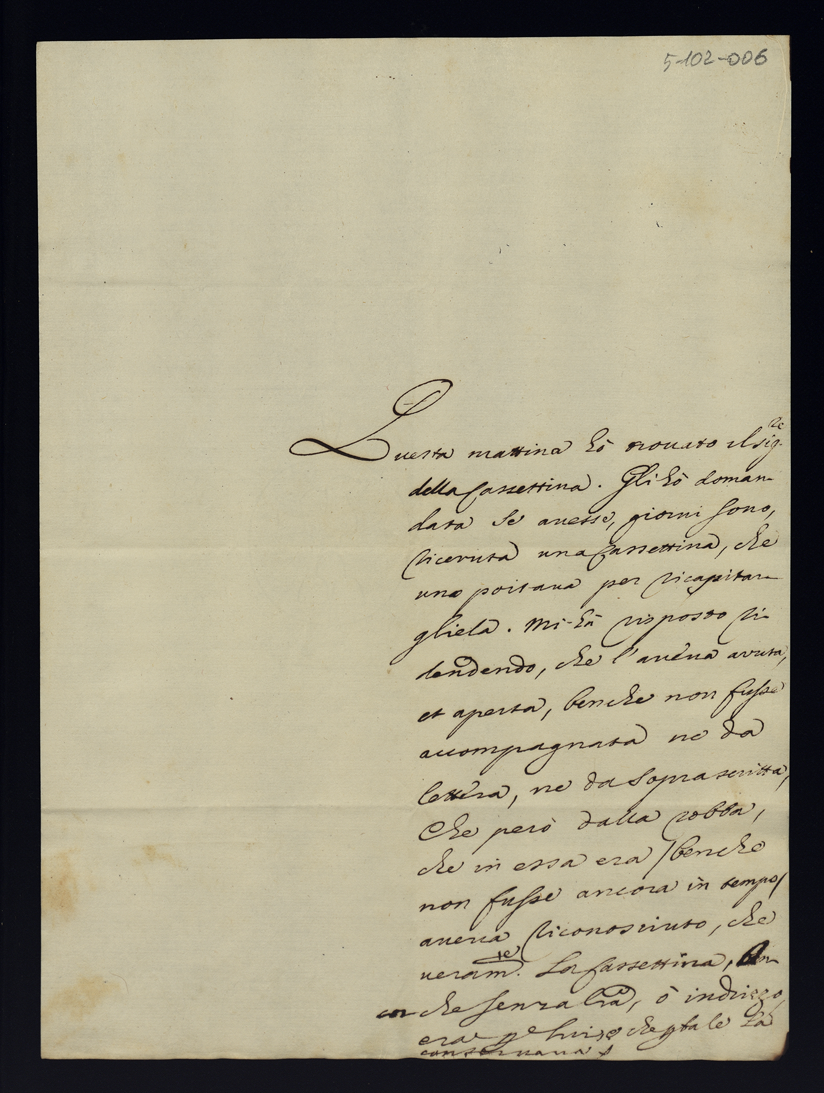 5-102-006
Questa mattina hò trouato il sig.re
della Cassettina. Gli hò doman-
data se auesse, giorni sono,
riceuuta una Cassettina, che
uno portaua per ricapitar-
gliela. Mi hà risposto ri-
dendo, che l'aueua auuta,
et aperta, benche non fusse
accompagnata ne da
lettera, ne da soprascritta,
che però dalla robba,
che in essa era /benche
non fusse ancora in tempo/
aueua riconosciuto, che
ueram.te la Cassettina, an-
che senza lra, ò indirizzo,
era p lui, e che p tale la
conseruaua